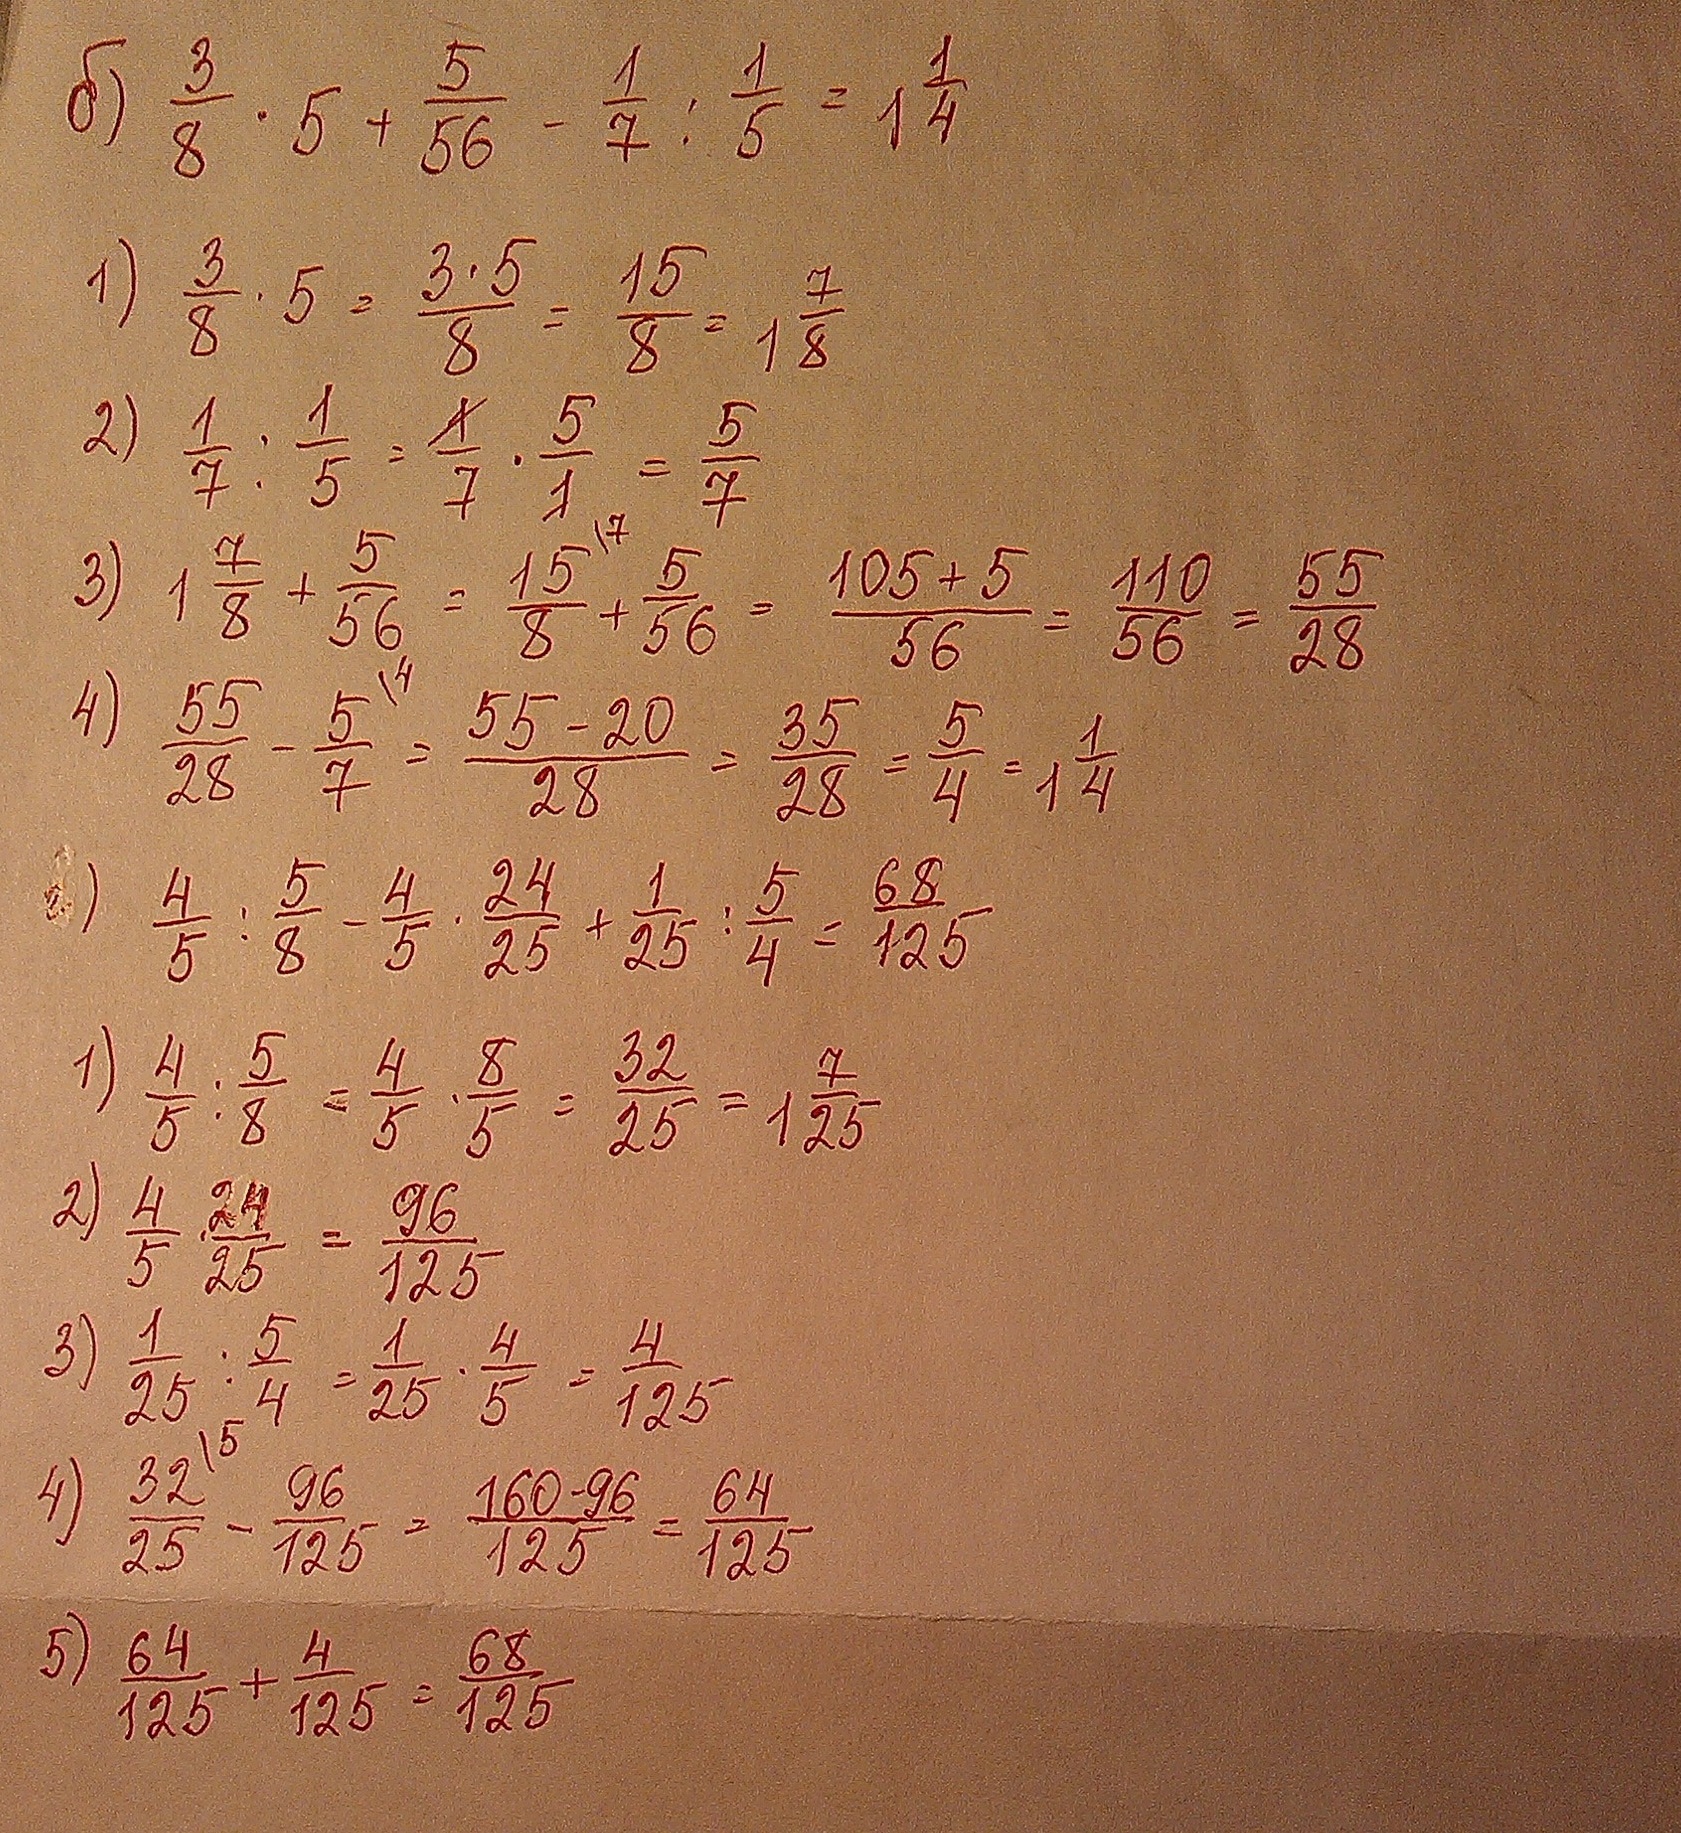 б) 3/8 · 5 + 5/56 - 1/7 : 1/5 = 1 1/4
1) 3/8 · 5 = 3·5/8 = 15/8 = 1 7/8
2) 1/7 : 1/5 = 1/7 · 5/1 = 5/7
3) 1 7/8 + 5/56 = 15/8 \7 + 5/56 = 105+5/56 = 110/56 = 55/28
4) 55/28 - 5/7 \4 = 55-20/28 = 35/28 = 5/4 = 1 1/4
) 4/5 : 5/8 - 4/5 · 24/25 + 1/25 : 5/4 = 68/125
1) 4/5 : 5/8 = 4/5 · 8/5 = 32/25 = 1 7/25
2) 4/5 · 24/25 = 96/125
3) 1/25 : 5/4 = 1/25 · 4/5 = 4/125
4) 32/25 \5 - 96/125 = 160-96/125 = 64/125
5) 64/125 + 4/125 = 68/125